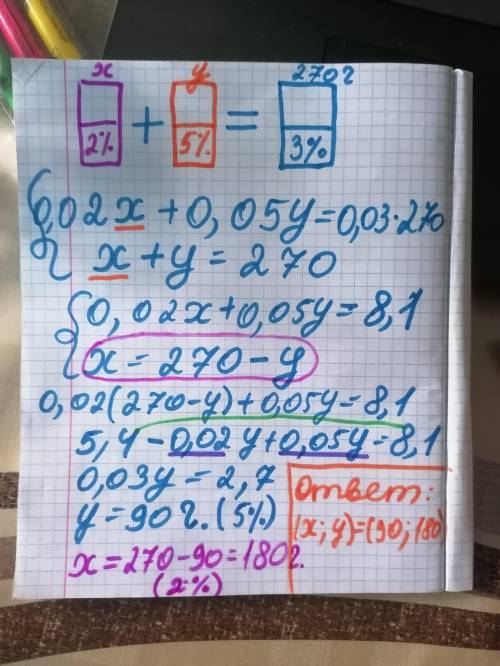 x y 270г
2% + 5% = 3%
0,02x + 0,05y = 0,03·270
x + y = 270
0,02x + 0,05y = 8,1
x = 270 - y
0,02(270-y) + 0,05y = 8,1
5,4 - 0,02y + 0,05y = 8,1
0,03y = 2,7
y = 90 г. (5%)
x = 270 - 90 = 180 г.
(2%)
Ответ:
(x; y) = (90; 180)